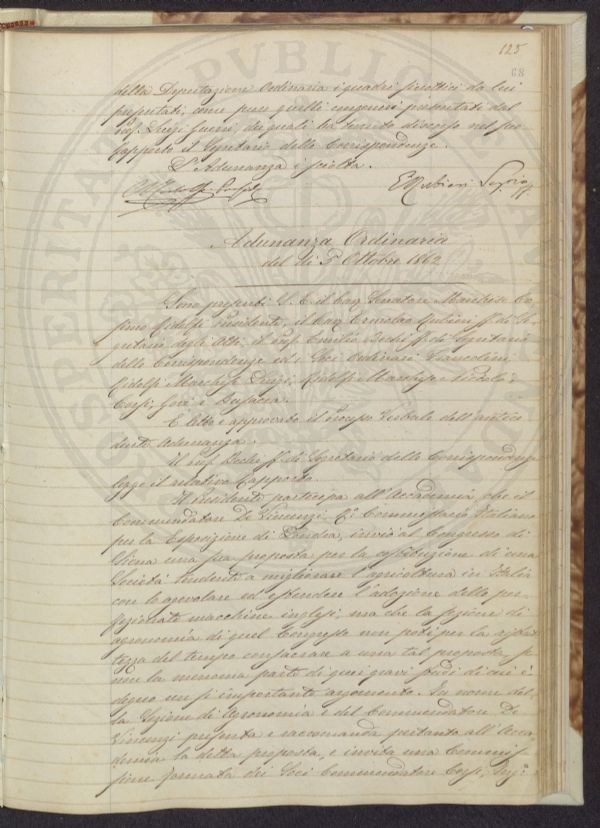 125
68
della Deputazione Ordinaria i quadri sinottici da lui
presentati, come pure quelli congeneri presentati dal
sig. Luigi Guerri, dei quali ha tenuto discorso nel suo
rapporto il Segretario delle Corrispondenze.
L'Adunanza è sciolta.
E. Rubieri Segrio ff.
Adunanza Ordinaria
del dì 5 Ottobre 1862
Sono presenti S. E. il Cav. Senatore Marchese Co-
simo Ridolfi Presidente, il Cav. Ermolao Rubieri ff. di Se-
gretario degli Atti, il prof. Emilio Bechi ff. di Segretario
delle Corrispondenze ed i Soci Ordinari
Ridolfi Marchese Luigi, Ridolfi Marchese Niccolò
Corsi, Gori e
È letto e approvato il processo Verbale dell'antece-
dente Adunanza.
Il prof. Bechi ff. di Segretario delle Corrispondenze
legge il relativo Rapporto.
Il Presidente partecipa all'Accademia, che il
Commendatore De Vincenzi R.o Commissario Italiano
per la Esposizione di Londra, inviò al Congresso di
Siena una sua proposta per la costituzione di una
Società tendente a migliorare l'agricoltura in Italia
con lo agevolare ed estendere l'adozione delle per-
fezionate macchine inglesi, ma che la sezione di
agronomia di quel Congresso non potè per la ristret-
tezza del tempo consacrare a una tal proposta, se
non la menoma parte di quei gravi studi di cui è
degno un sì importante argomento. In nome del-
la Sezione di Agronomia e del Commendatore De
Vincenzi presenta e raccomanda pertanto all'Acca-
demia la detta proposta, e invita una Commis-
sione formata dei Soci Commendatore Corsi,